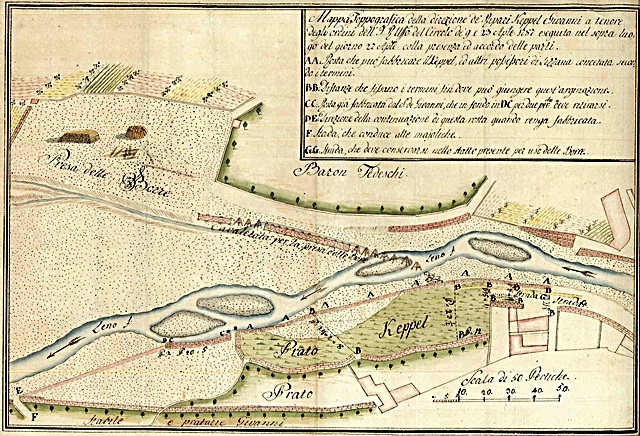 Mappa Toppografica della direzione de' Ripari Keppel e Givanni a tenore
degli ordini dell' Uffo del Circolo di 9 e 23 Aple 1787 eseguita nel sopra luo,
go del giorno 27 Aple colla presenza ed accordo delle parti.
AA. Rosta che può fabbricare il Keppel, ed altri possessori di Lizzana concertata secon,
do i termini.
BB. Distanze che fissano i termini fin dove può giungere quest'arginazione.
CC. Rosta già fabbricata dal S. de Givanni, che in fondo in DC per due pertiche deve ritirarsi.
DE. Direzione della continuazione di questa rosta quando venga fabbricata.
F. Strada, che conduce alle majoliche.
GG. Strada, che deve conservarsi nello stato presente per uso delle Bore.
Presa delle Boere
Baron Tedeschi.
Cavaletada per la presa delle Bore
Leno f.
Leno f.
Strada G
Strada
Keppel
Prato
Prato
Scala di 50 Pertiche.
5. 10. 20. 30. 40. 50.
E
F
Fratte e prative Givanni